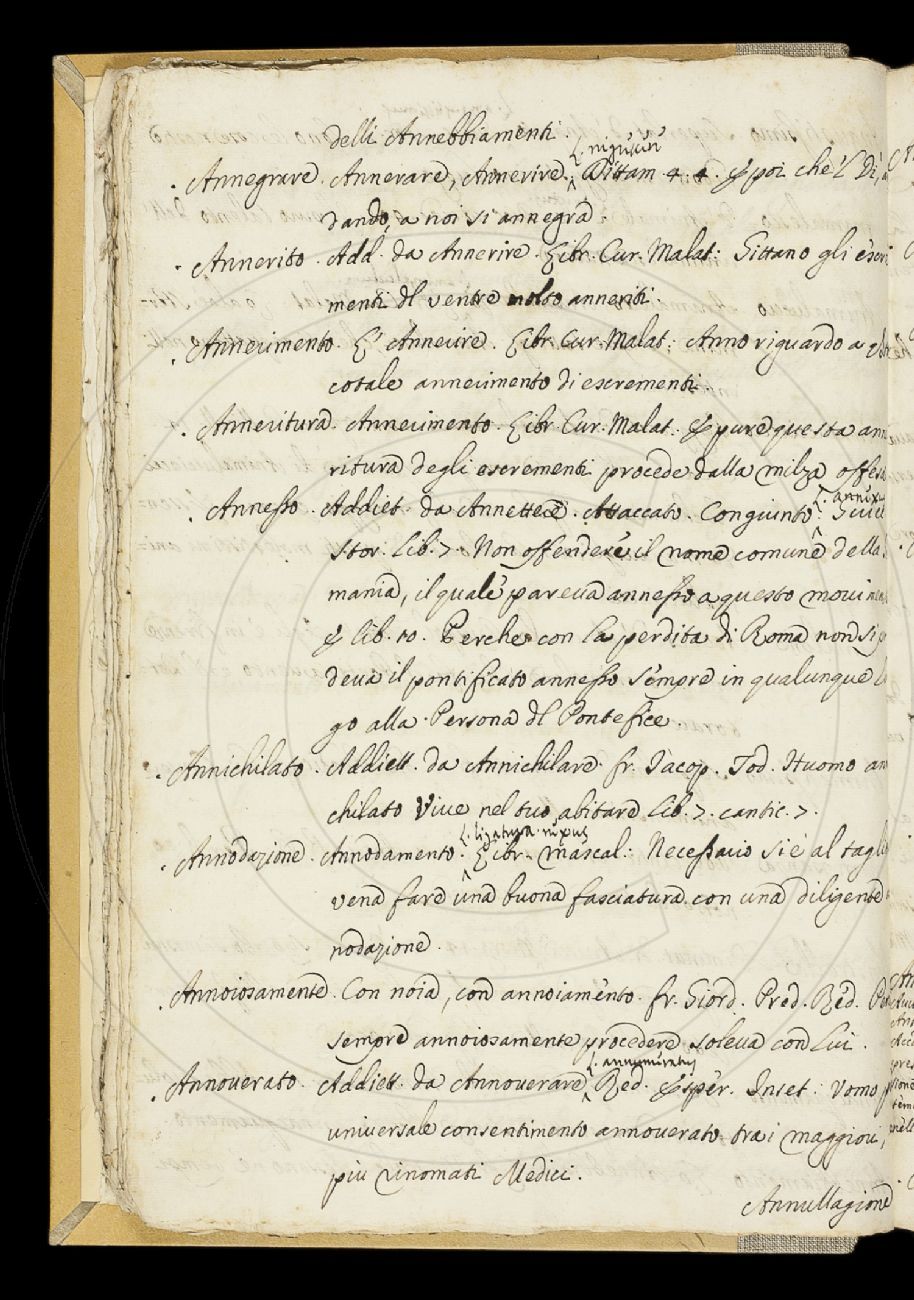 delli Annebbiamenti.
Annegrare. Annerare, Annerire. Dittam 4. 4. E poi che 'l Dì,
dando, a noi si annegra.
Annerito. Add. da Annerire. Libr. Cur. Malat: Gittano gli escri
menti dl ventre molto anneriti.
Annerimento. L' Annerire. Libr. Cur. Malat: Anno riguardo a
cotale annerimento di escrementi.
Anneritura. Annerimento. Libr. Cur. Malat: E pure questa ann
ritura degli escrementi procede dalla milza offesa
L. annex
Annesso. Addiet. da Annettere. Attaccato. Congiunto. Guicc
Stor. Lib. 7. Non offendere il nome comune della
mania, il quale pareva annesso a questo movim
E lib. 10. Perche con la perdita di Roma non si
deva il pontificato annesso sempre in qualunque
go alla Persona dl Pontefice.
Annichilato. Addiett. da Annichilare. fr. Iacop. Tod. Huomo an
chilato Vive nel tuo abitare lib. 7. cantic. 7.
L. ligatura
Annodazione. Annodamento. Libr. mascal: Necessario si è al tagli
vena fare una buona fasciatura con una diligente
nodazione.
Annoiosamente. Con noia, con annoiamento. fr. Giord. Pred. Red.
sempre annoiosamente procedere soleva con Lui.
L. annumeratus
Annoverato. Addiett. da Annoverare. Red. Esper. Inset: Vomo
universale consentimento annoverato tra i maggiori,
più rinomati Medici.
Annullagione